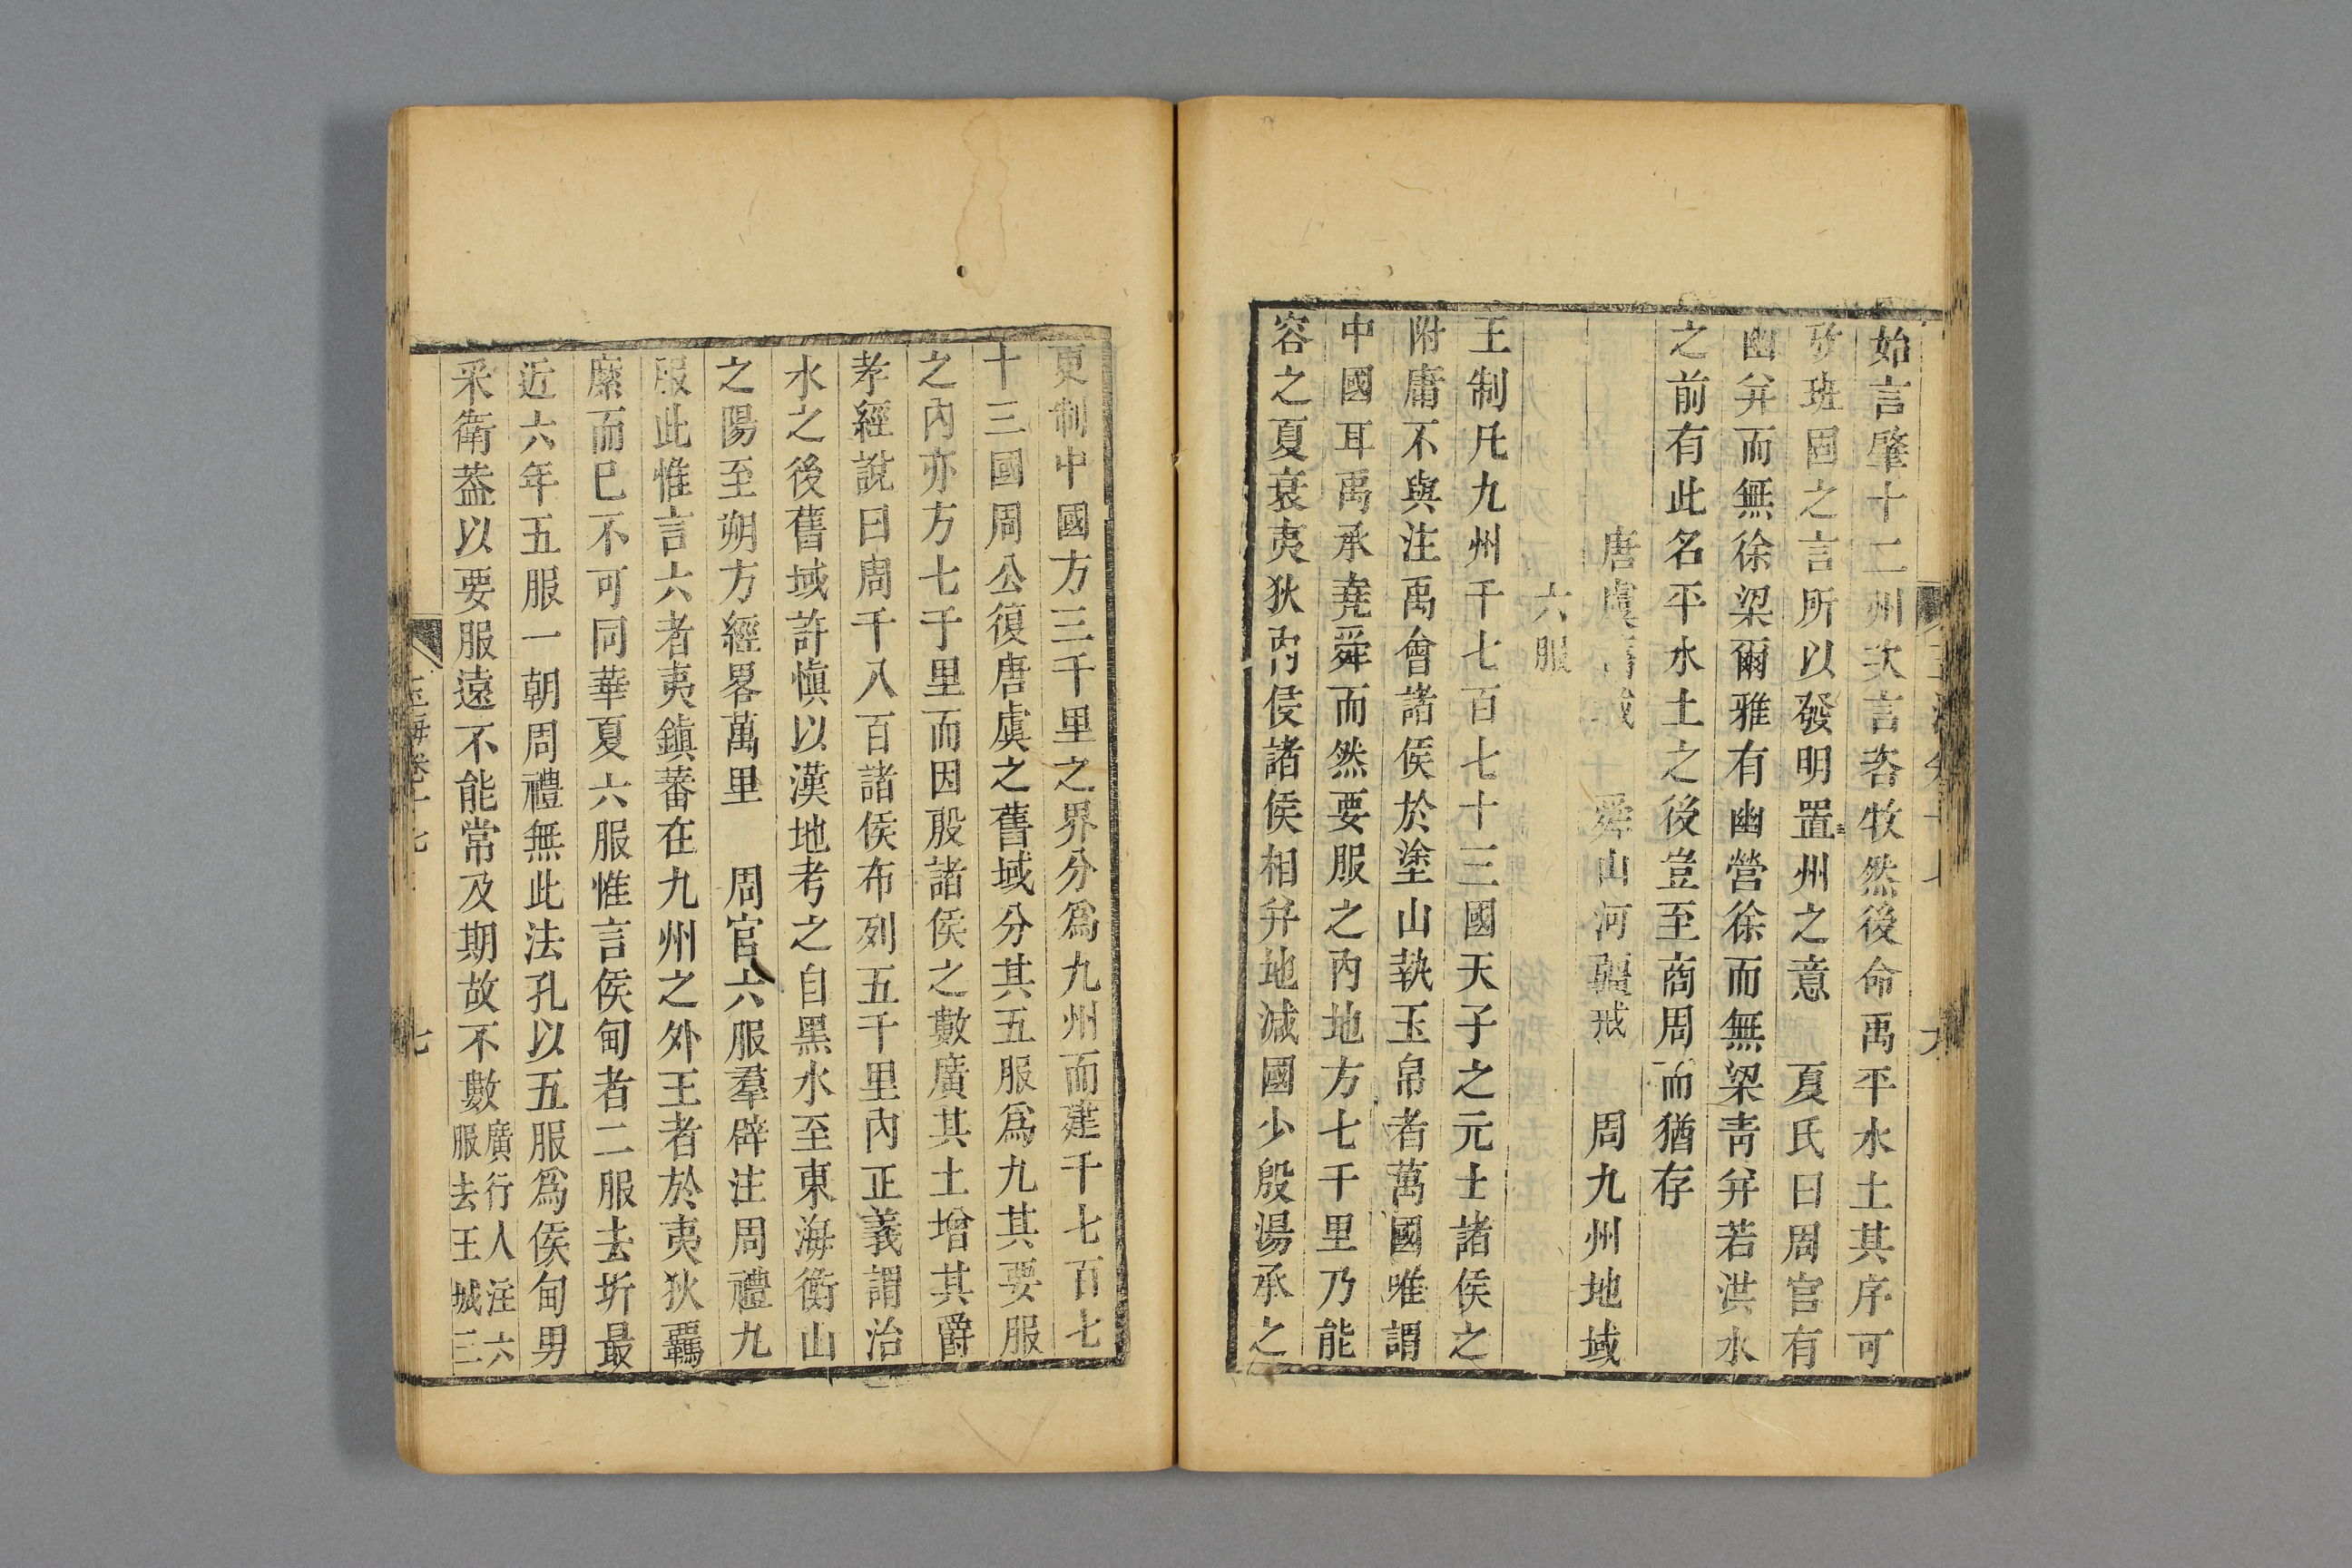 始言肇十二州次言咨牧然後命禹平水土其序可
攷班固之言所以發明置州之意　夏氏曰周官有
幽并而無徐梁爾雅有幽營徐而無梁青并若洪水
之前有此名平水土之後豈至商周而猶存
唐虞舊域　舜山河疆戒　周九州地域
六服
王制凡九州千七百七十三國天子之元士諸侯之
附庸不與注禹會諸侯於塗山執玉帛者萬國唯謂
中國耳禹承堯舜而然要服之內地方七千里乃能
容之夏衰夷狄內侵諸侯相并地減國少殷湯承之
更制中國方三千里之界分爲九州而建千七百七
十三國周公復唐虞之舊域分其五服爲九其要服
之內亦方七千里而因殷諸侯之數廣其土增其爵
孝經說曰周千八百諸侯布列五千里內正義謂治
水之後舊域許愼以漢地考之自黑水至東海衡山
之陽至朔方經畧萬里　周官六服羣辟注周禮九
服此惟言六者夷鎮蕃在九州之外王者於夷狄羈
縻而已不可同華夏六服惟言侯甸者二服去圻最
近六年五服一朝周禮無此法孔以五服爲侯甸男
采衛葢以要服遠不能常及期故不數廣行人注六
服去王城三
玉海卷十七
七